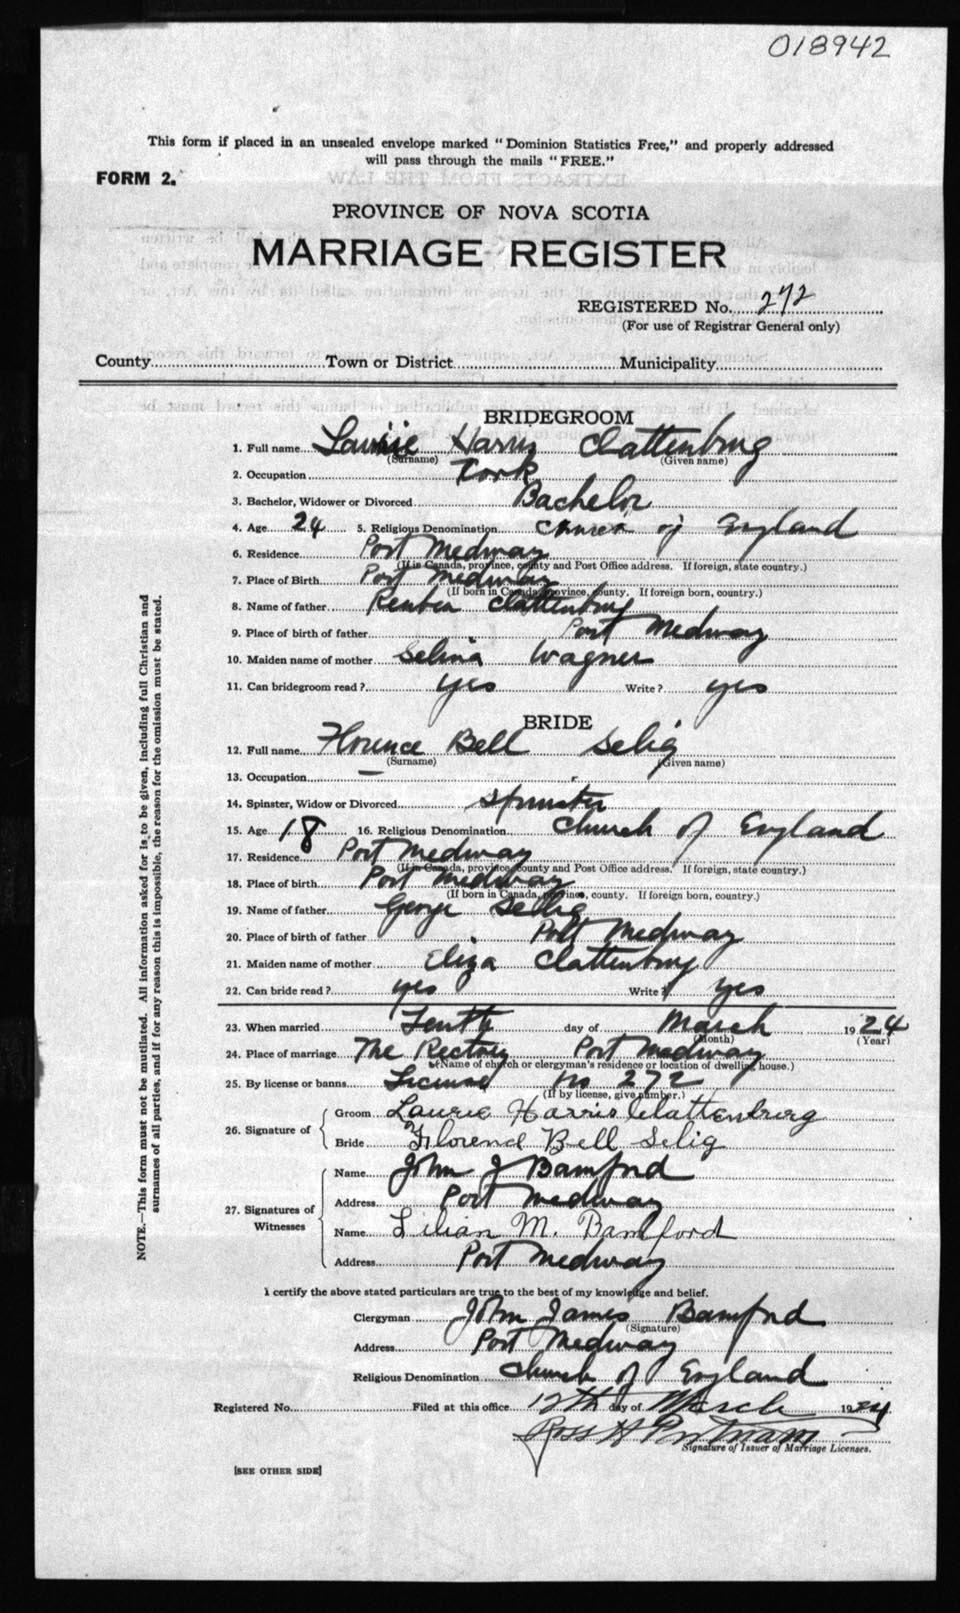 018942
This form if placed in an unsealed envelope marked "Dominion Statistics Free," and properly addressed
will pass through the mails "FREE."
FORM 2.
PROVINCE OF NOVA SCOTIA
MARRIAGE REGISTER
REGISTERED No. 272
(For use of Registrar General only)
County Town or District Municipality
BRIDEGROOM
1. Full name Laurie Harris Clattenburg
(Surname) (Given name)
2. Occupation Cook
3. Bachelor, Widower or Divorced Bachelor
4. Age 24 5. Religious Denomination Church of England
6. Residence Port Medway
(If in Canada, province, county and Post Office address. If foreign, state country.)
7. Place of Birth Port Medway
(If born in Canada, province, county. If foreign born, country.)
8. Name of father Reuben Clattenburg
9. Place of birth of father Port Medway
10. Maiden name of mother Selina Wagner
11. Can bridegroom read? yes Write? yes
BRIDE
12. Full name Florence Bell Selig
(Surname) (Given name)
13. Occupation —
14. Spinster, Widow or Divorced Spinster
15. Age 18 16. Religious Denomination Church of England
17. Residence Port Medway
(If in Canada, province, county and Post Office address. If foreign, state country.)
18. Place of birth Port Medway
(If born in Canada, province, county. If foreign born, country.)
19. Name of father George Selig
20. Place of birth of father Port Medway
21. Maiden name of mother Eliza Clattenburg
22. Can bride read? yes Write? yes
23. When married Tenth day of March 1924
(Month) (Year)
24. Place of marriage The Rectory Port Medway
(Name of church or clergyman's residence or location of dwelling house.)
25. By license or banns License No 272
(If by license, give number.)
26. Signature of Groom Laurie Harris Clattenburg
Bride Florence Bell Selig
27. Signatures of Witnesses
Name John J Bamford
Address Port Medway
Name Lilian M. Bamford
Address Port Medway
I certify the above stated particulars are true to the best of my knowledge and belief.
Clergyman John James Bamford
(Signature)
Address Port Medway
Religious Denomination Church of England
Registered No. Filed at this office 12th day of March 1924
Ross H Putnam
Signature of Issuer of Marriage Licenses.
[SEE OTHER SIDE]
NOTE.—This form must not be mutilated. All information asked for is to be given, including full Christian and
surnames of all parties, and if for any reason this is impossible, the reason for the omission must be stated.